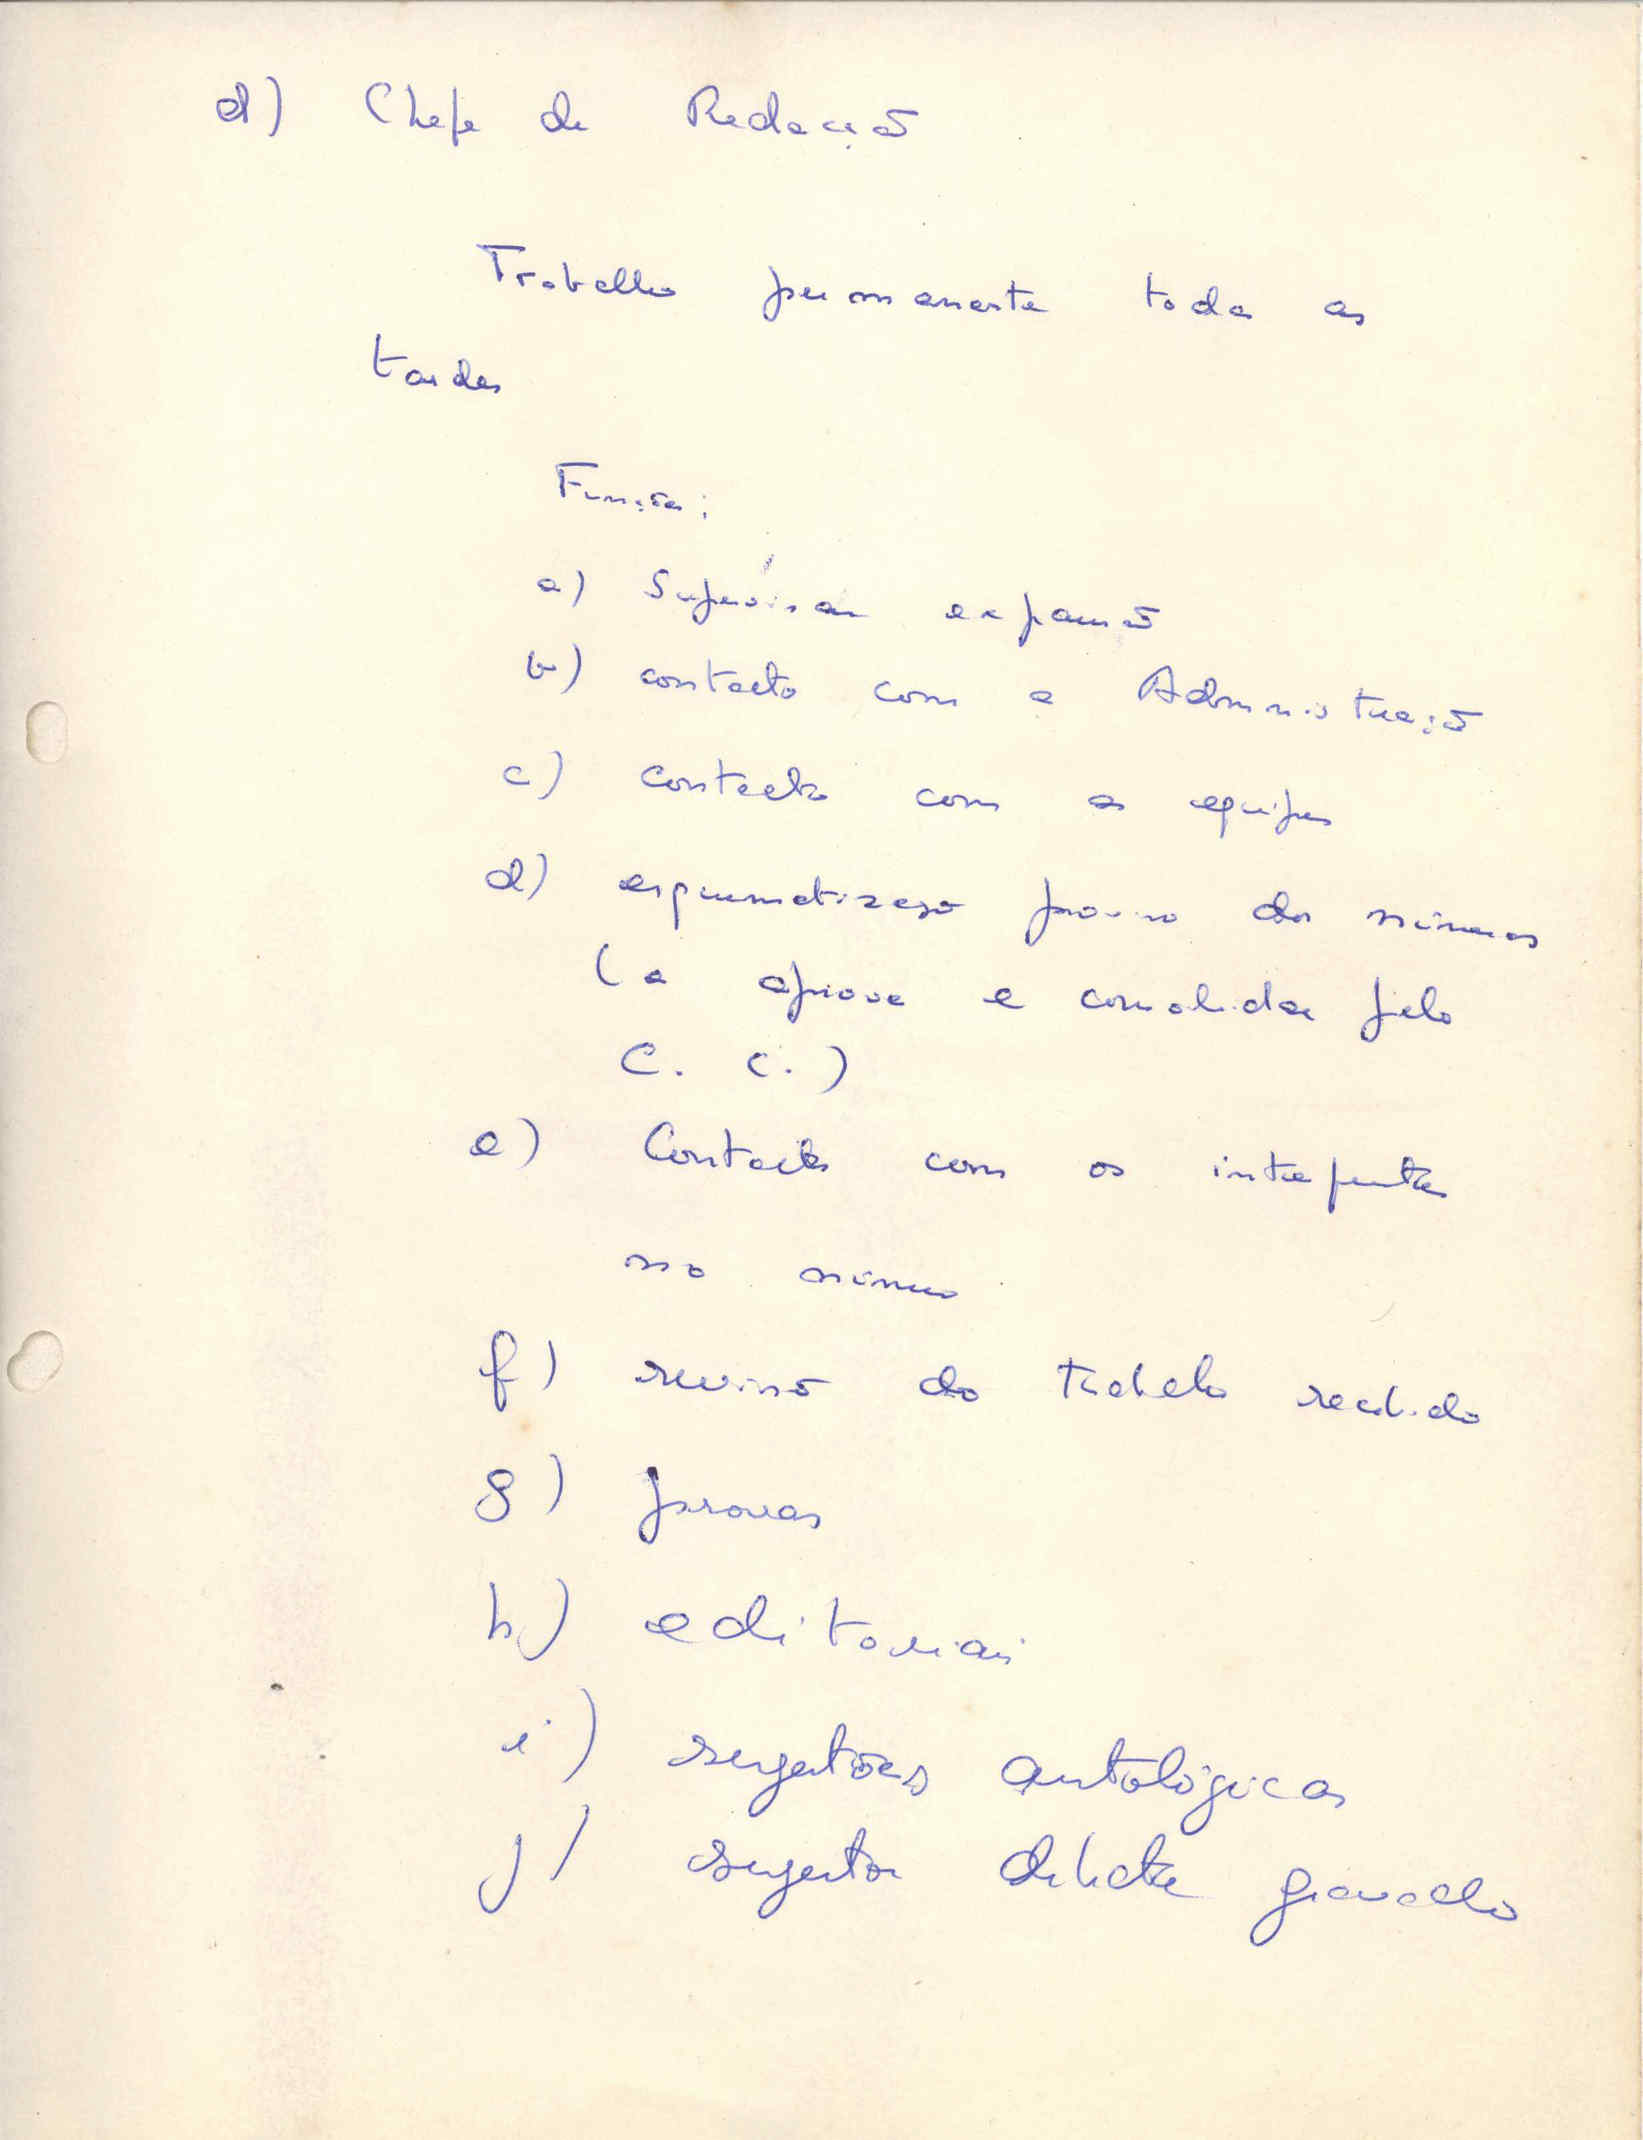 d) Chefe de Redacção
Trabalho permanente todas as
tardes
Funções:
a) Supervisar expansão
b) contacto com a Administração
c) contacto com as equipes
d) esquematização prévia dos números
(a aprovar e consolidar pelo
C. C.)
e) Contactos com os intérpretes
no número
f) revisão do trabalho recebido
g) provas
h) editoriais
i) sugestões antológicas
j) sugestões debate gravado